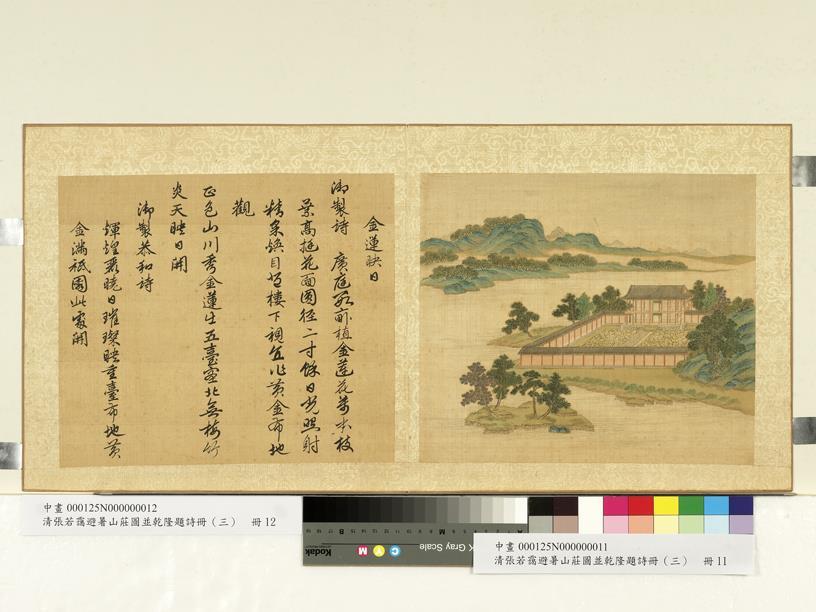 金蓮映日
御製詩 廣庭數畝植金蓮花萬本枝
葉高挺花面圓徑二寸餘日光照射
精采煥目登樓下視直作黃金布地
觀
正色山川秀金蓮出五臺塞北無梅竹
炎天映日開
御製恭和詩
煌曉日璀璨映重臺布地黃
金滿祇園此處開
中畫 000125N000000012
清張若靄避暑山莊圖並乾隆題詩冊（三） 冊 12
中畫 000125N000000011
清張若靄避暑山莊圖並乾隆題詩冊（三） 冊 11
Kodak
K Gray Scale
C Y M
A M B